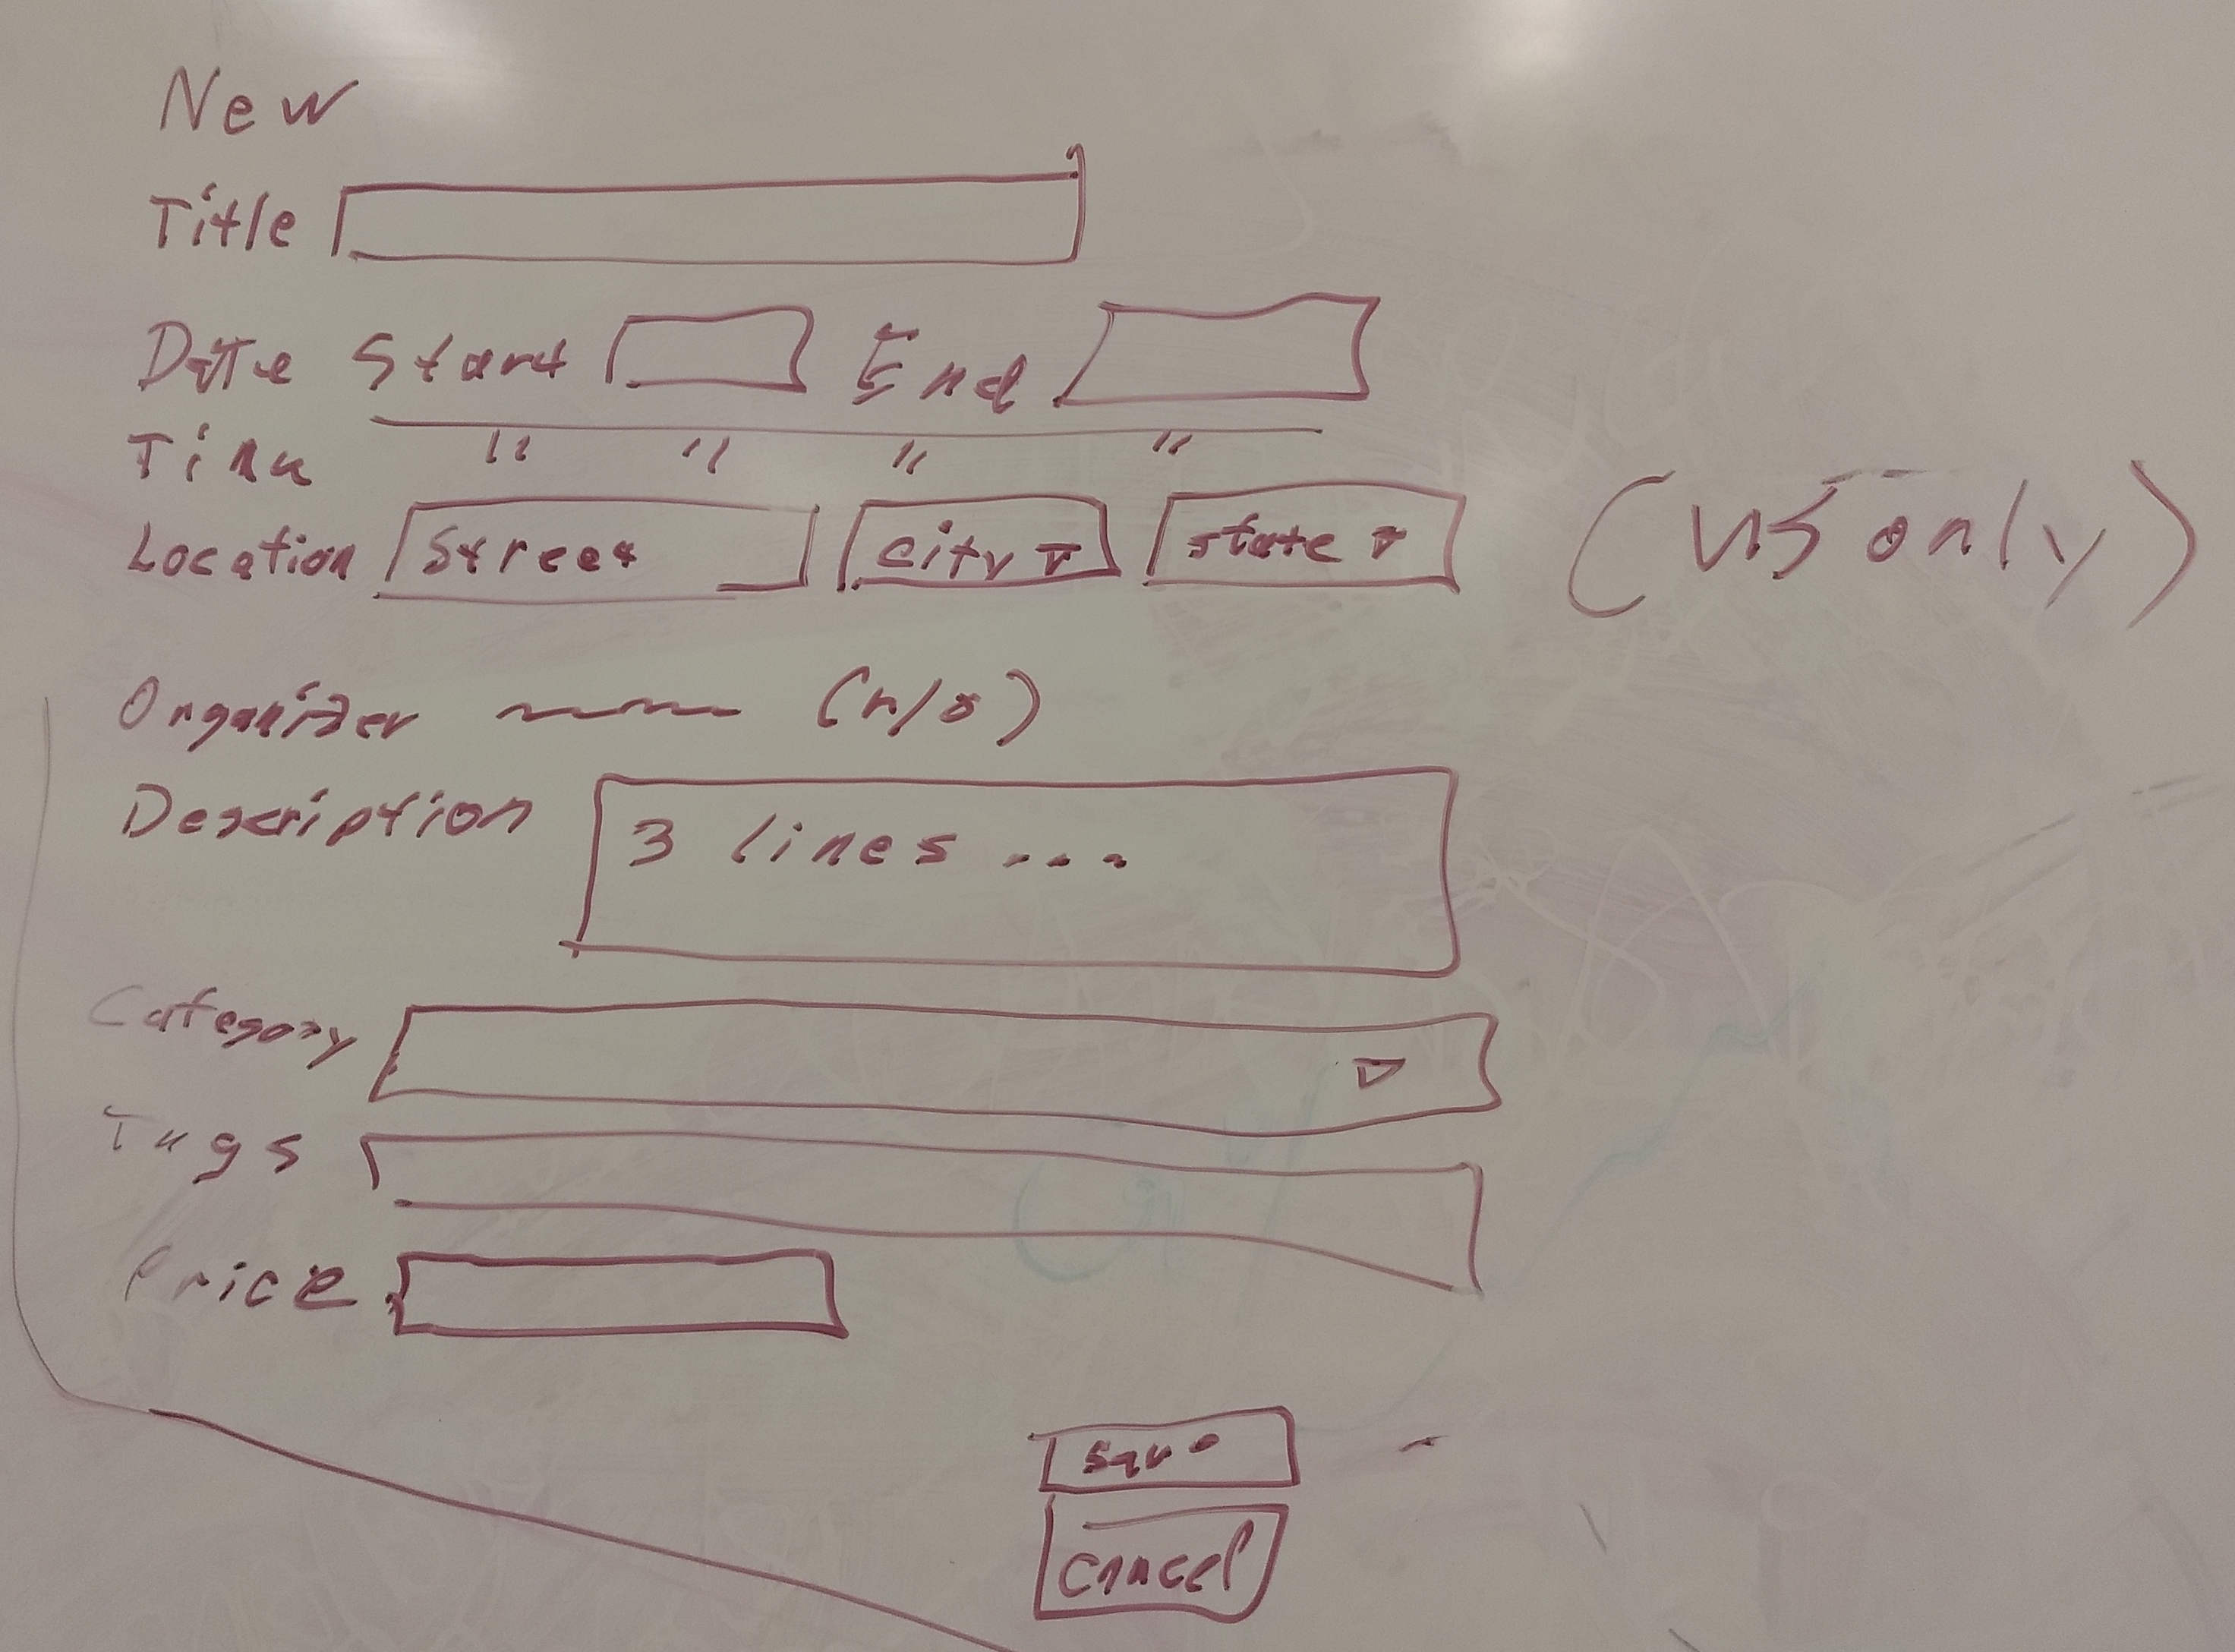 New
Title
Date Start End
Time " " " "
Location Street city state (US only)
Organizer
Description 3 lines ...
Category
Tags
Price
save
cancel